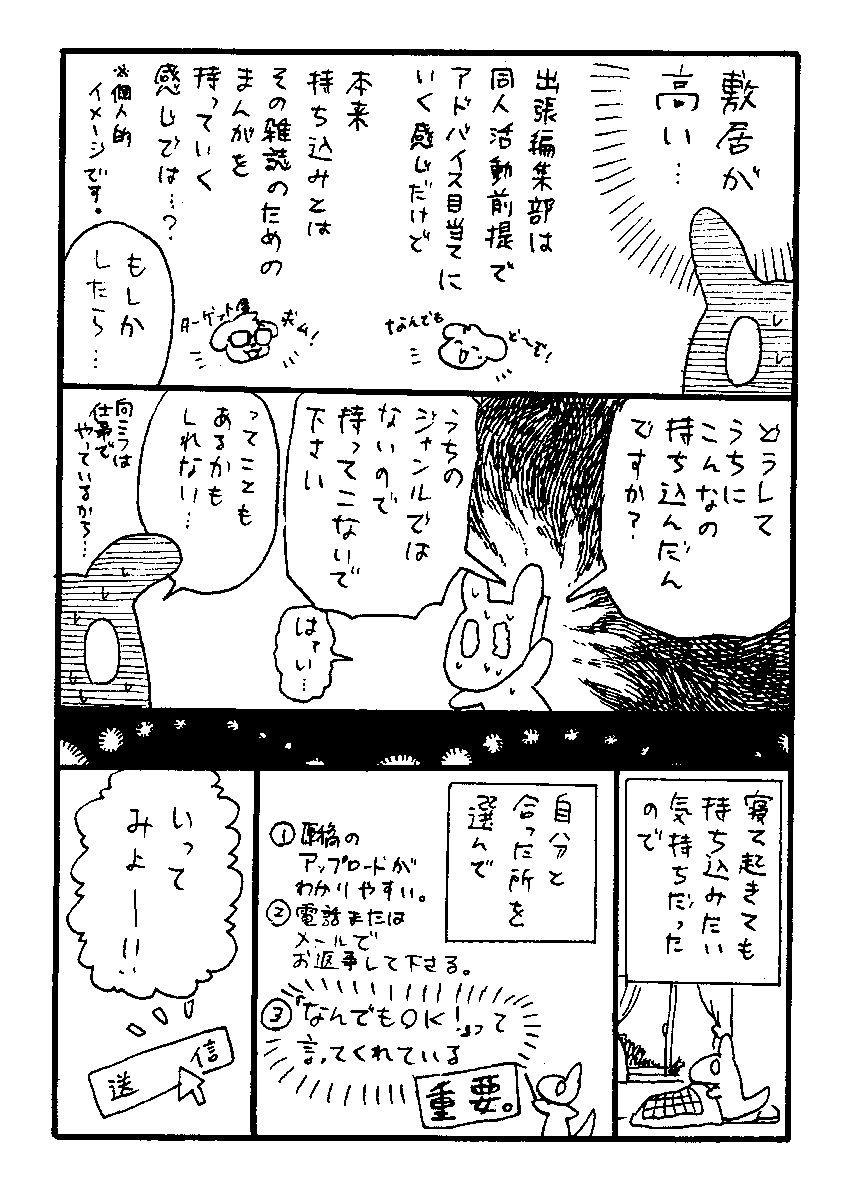 敷居が
高い…
出張編集部は
同人活動前提で
アドバイス目当てに
いく感じだけど
なんでも
ど〜ぞ!
本来
持ち込みとは
その雑誌のための
まんがを
持っていく
感じでは…?
※個人的
イメージです。
ターゲット層
ボム!
もしか
したら…
どうして
うちに
こんなの
持ち込んだん
ですか?
うちの
ジャンルでは
ないので
持ってこないで
下さい
はァい…
ってことも
あるかも
しれない…
向こうは
仕事で
やっているから…
寝て起きても
持ち込みたい
気持ちだった
ので
自分と
合った所を
選んで
①原稿の
アップロードが
わかりやすい。
②電話または
メールで
お返事して下さる。
③「なんでもOK!」って
言ってくれている
重要。
いって
みよー!!
送信